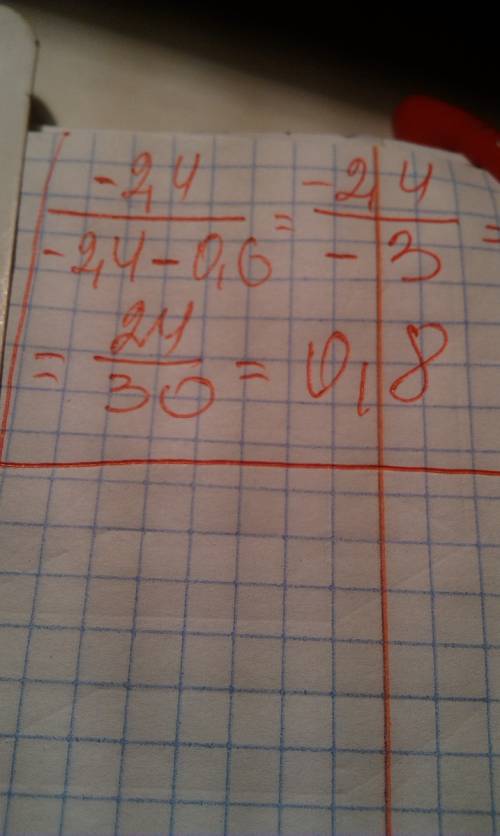 -2,4 / -2,4-0,6 = -2,4 / -3 =
= 24 / 30 = 0,8